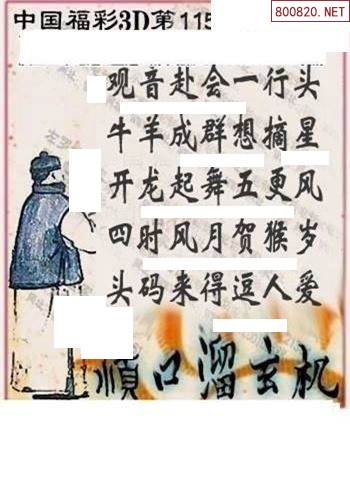 800820.NET
中国福彩3D第115
观音赴会一行头
牛羊成群想摘星
开龙起舞五更风
四时风月贺猴岁
头码来得逗人爱
顺口溜玄机